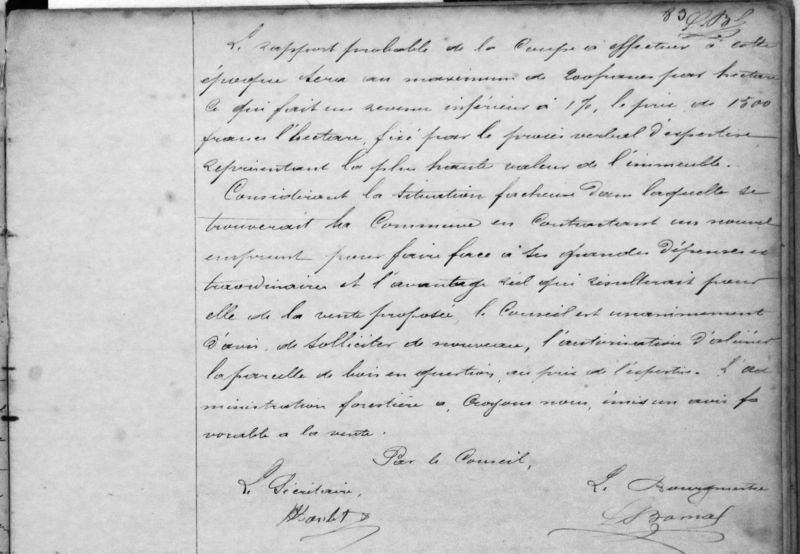 83
Le rapport probable de la Coupe à effectuer à cette
époque sera au maximum de 200 francs par hectare
Ce qui fait un revenu inférieur à 1%, le prix de 1500
francs l'hectare, fixé par le procès verbal d'expertise
représentant la plus haute valeur de l'immeuble.
Considérant la situation facheuse dans laquelle se
trouverait la Commune en Contractant un nouvel
emprunt pour faire face à ses grandes dépenses ex
traordinaires et l'avantage réel qui résulterait pour
elle de la vente proposée, le Conseil est unanimement
d'avis de solliciter de nouveau, l'autorisation d'aliéner
la parcelle de bois en question, au prix de l'expertise. L'ad
ministration forestière a, croyons nous, émis un avis fa
vorable a la vente.
Par le Conseil,
Le Secrétaire, Le Bourgmestre